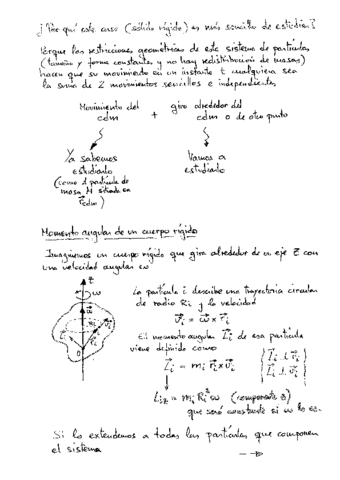 ¿Por qué este caso (sólido rígido) es más sencillo de estudiar?
Porque las restricciones geométricas de este sistema de partículas,
(tamaño y forma constantes, y no hay redistribución de masas)
hacen que su movimiento en un instante t cualquiera sea
la suma de 2 movimientos sencillos e independientes
Movimiento del cdm + giro alrededor del cdm o de otro punto
Ya sabemos estudiarlo
(como 1 partícula de masa M situada en r⃗cdm)
Vamos a estudiarlo
Momento angular de un cuerpo rígido
Imaginemos un cuerpo rígido que gira alrededor de un eje Z con
una velocidad angular ω
La partícula i describe una trayectoria circular
de radio Ri y la velocidad
v⃗i = ω⃗ × r⃗i
El momento angular L⃗i de esa partícula
viene definido como
L⃗i = mi r⃗i × v⃗i
{L⃗i ⊥ r⃗i
L⃗i ⊥ v⃗i}
Liz = mi Ri² ω (componente z)
que será constante si ω lo es.
z
ω
ω⃗
Ri
v⃗i
L⃗i
r⃗i
O
Si lo extendemos a todas las partículas que componen
el sistema →